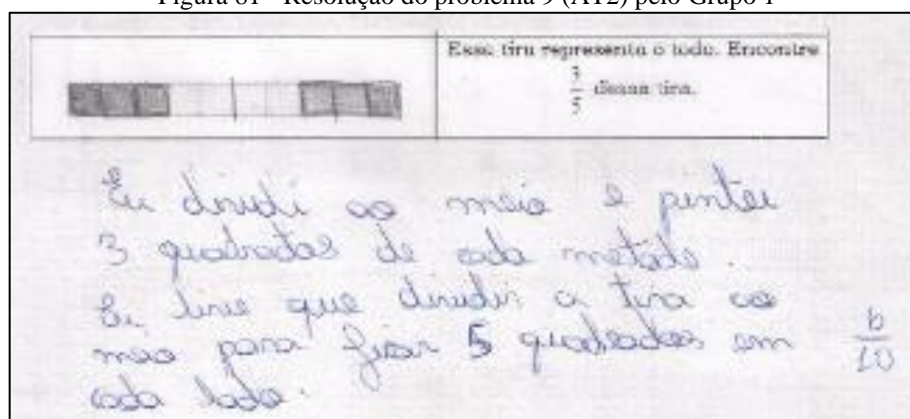 Figura 81 - Resolução do problema 9 (AT2) pelo Grupo 1
Essa tira representa o todo. Encontre
3/5 dessa tira.
Eu dividi ao meio e pintei
3 quadrados de cada metade.
Eu tive que dividir a tira ao
meio para ficar 5 quadrados em
cada lado.
6/10